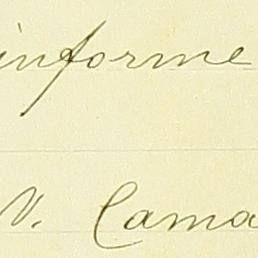 informe
V. Cama